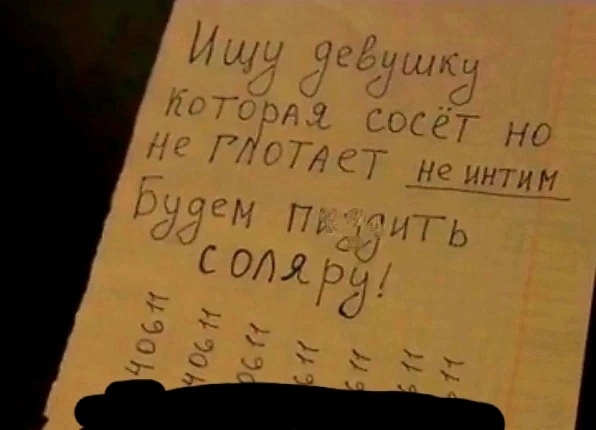 Ищу девушку
которая сосёт но
не глотает не интим
Будем
соляру!
40611 40611 0611 611 611 611 11